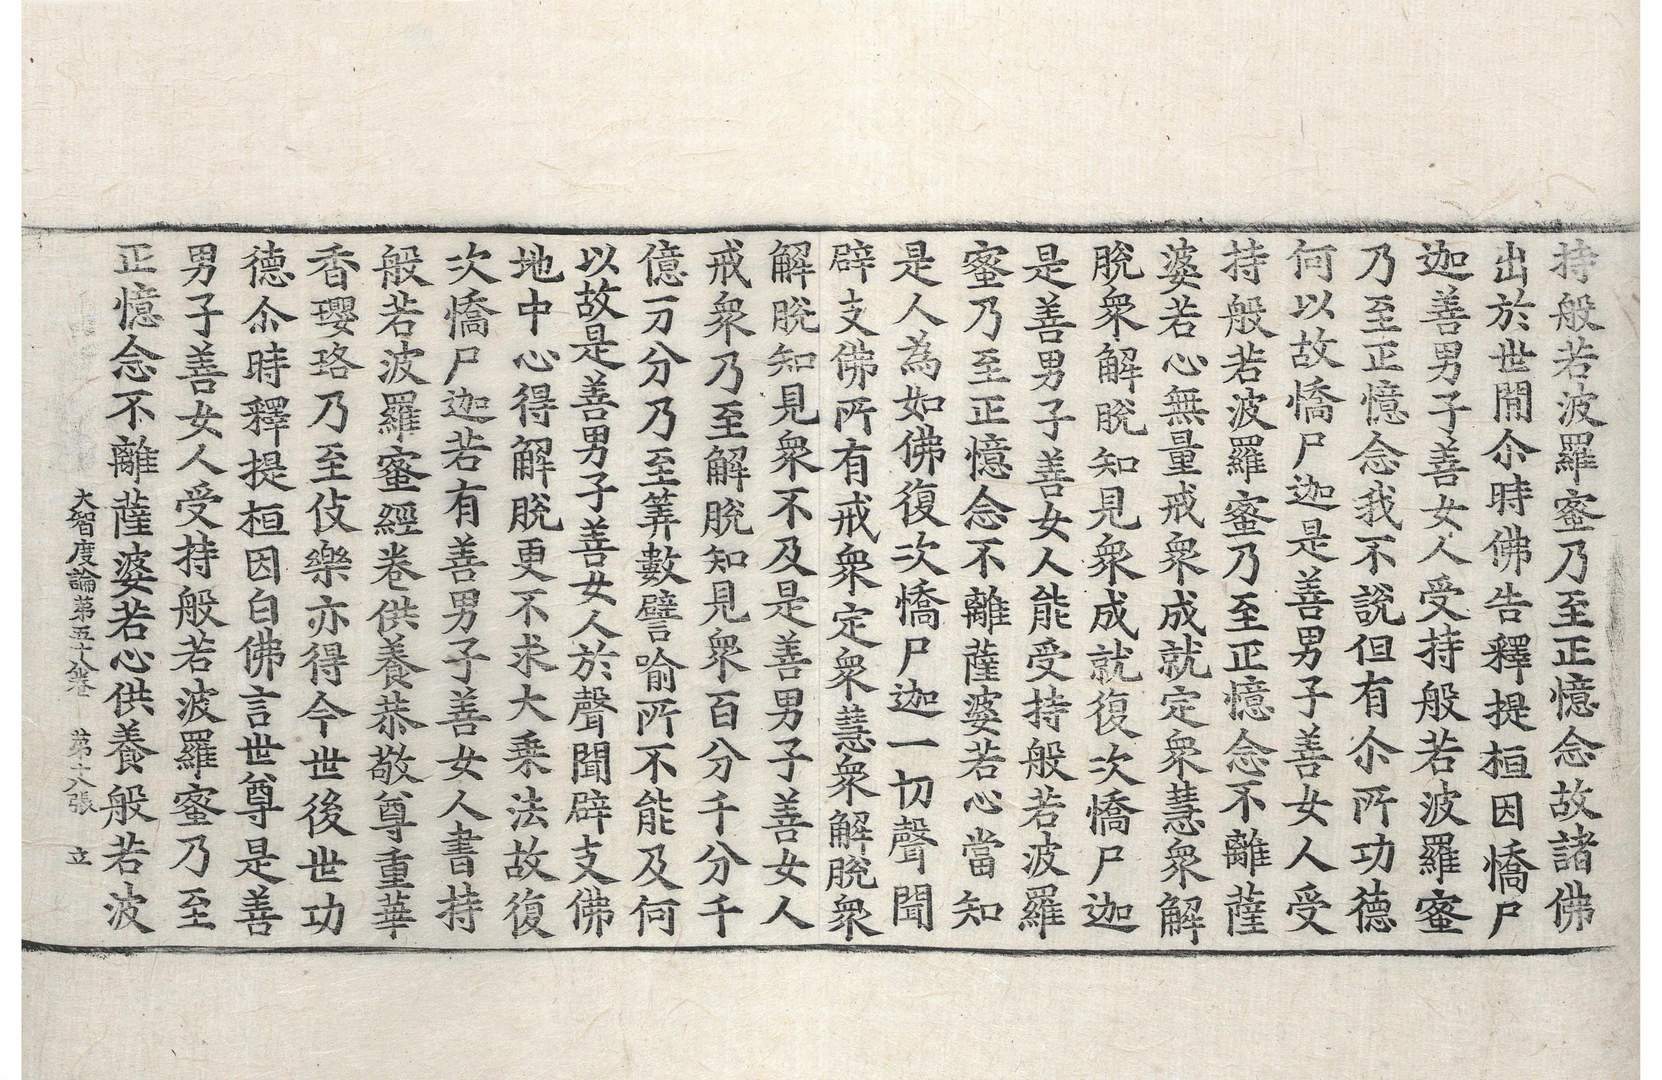 持般若波羅蜜乃至正憶念故諸佛
出於世閒尒時佛告釋提桓因憍尸
迦善男子善女人受持般若波羅蜜
乃至正憶念我不說但有尒所功德
何以故憍尸迦是善男子善女人受
持般若波羅蜜乃至正憶念不離薩
婆若心無量戒衆成就定衆慧衆解
脫衆解脫知見衆成就復次憍尸迦
是善男子善女人能受持般若波羅
蜜乃至正憶念不離薩婆若心當知
是人為如佛復次憍尸迦一切聲聞
辟支佛所有戒衆定衆慧衆解脫衆
解脫知見衆不及是善男子善女人
戒衆乃至解脫知見衆百分千分千
億万分乃至筭數譬喻所不能及何
以故是善男子善女人於聲聞辟支佛
地中心得解脫更不求大乗法故復
次憍尸迦若有善男子善女人書持
般若波羅蜜經卷供養恭敬尊重華
香瓔珞乃至伎樂亦得今世後世功
德尒時釋提桓因白佛言世尊是善
男子善女人受持般若波羅蜜乃至
正憶念不離薩婆若心供養般若波
大智度論苐五十八卷 苐十八張 立